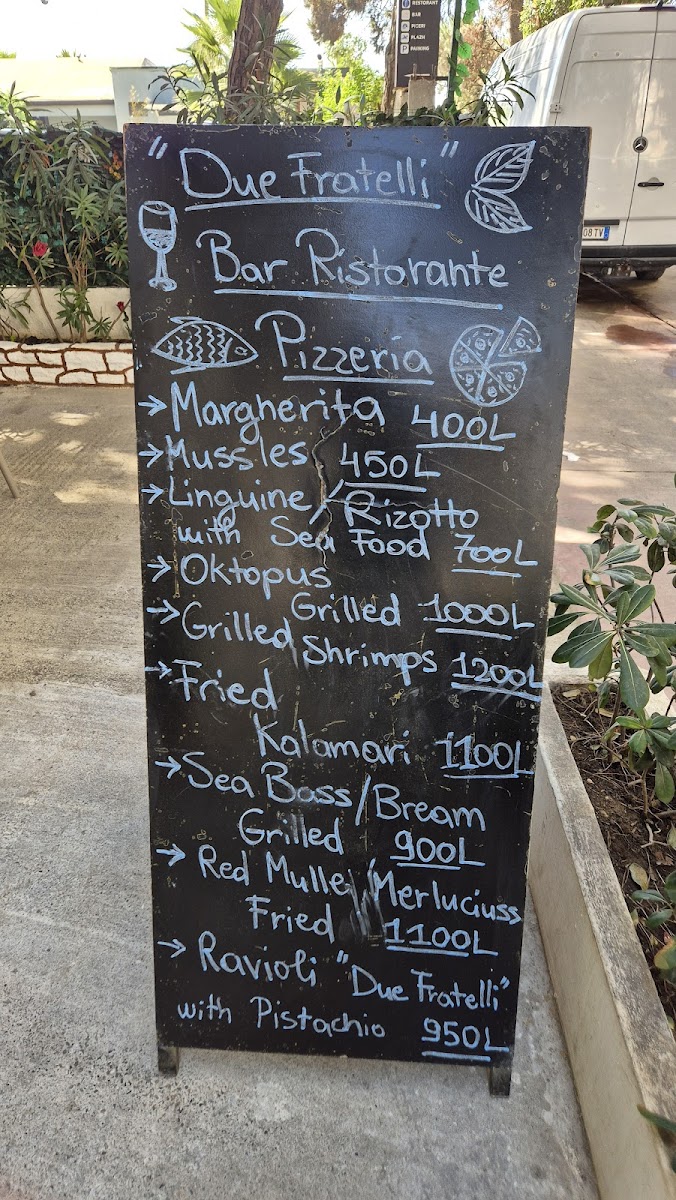 RESTORANT
BAR
PICERI
PLAZH
PARKING
08 TV
"Due Fratelli"
Bar Ristorante
Pizzeria
→ Margherita 400L
→ Mussles 450L
→ Linguine / Rizotto
with Sea Food 700L
→ Oktopus
Grilled 1000L
→ Grilled Shrimps 1200L
→ Fried
Kalamari 1100L
→ Sea Bass/Bream
Grilled 900L
→ Red Mulle/Merluciuss
Fried 1100L
→ Ravioli "Due Fratelli"
with Pistachio 950L